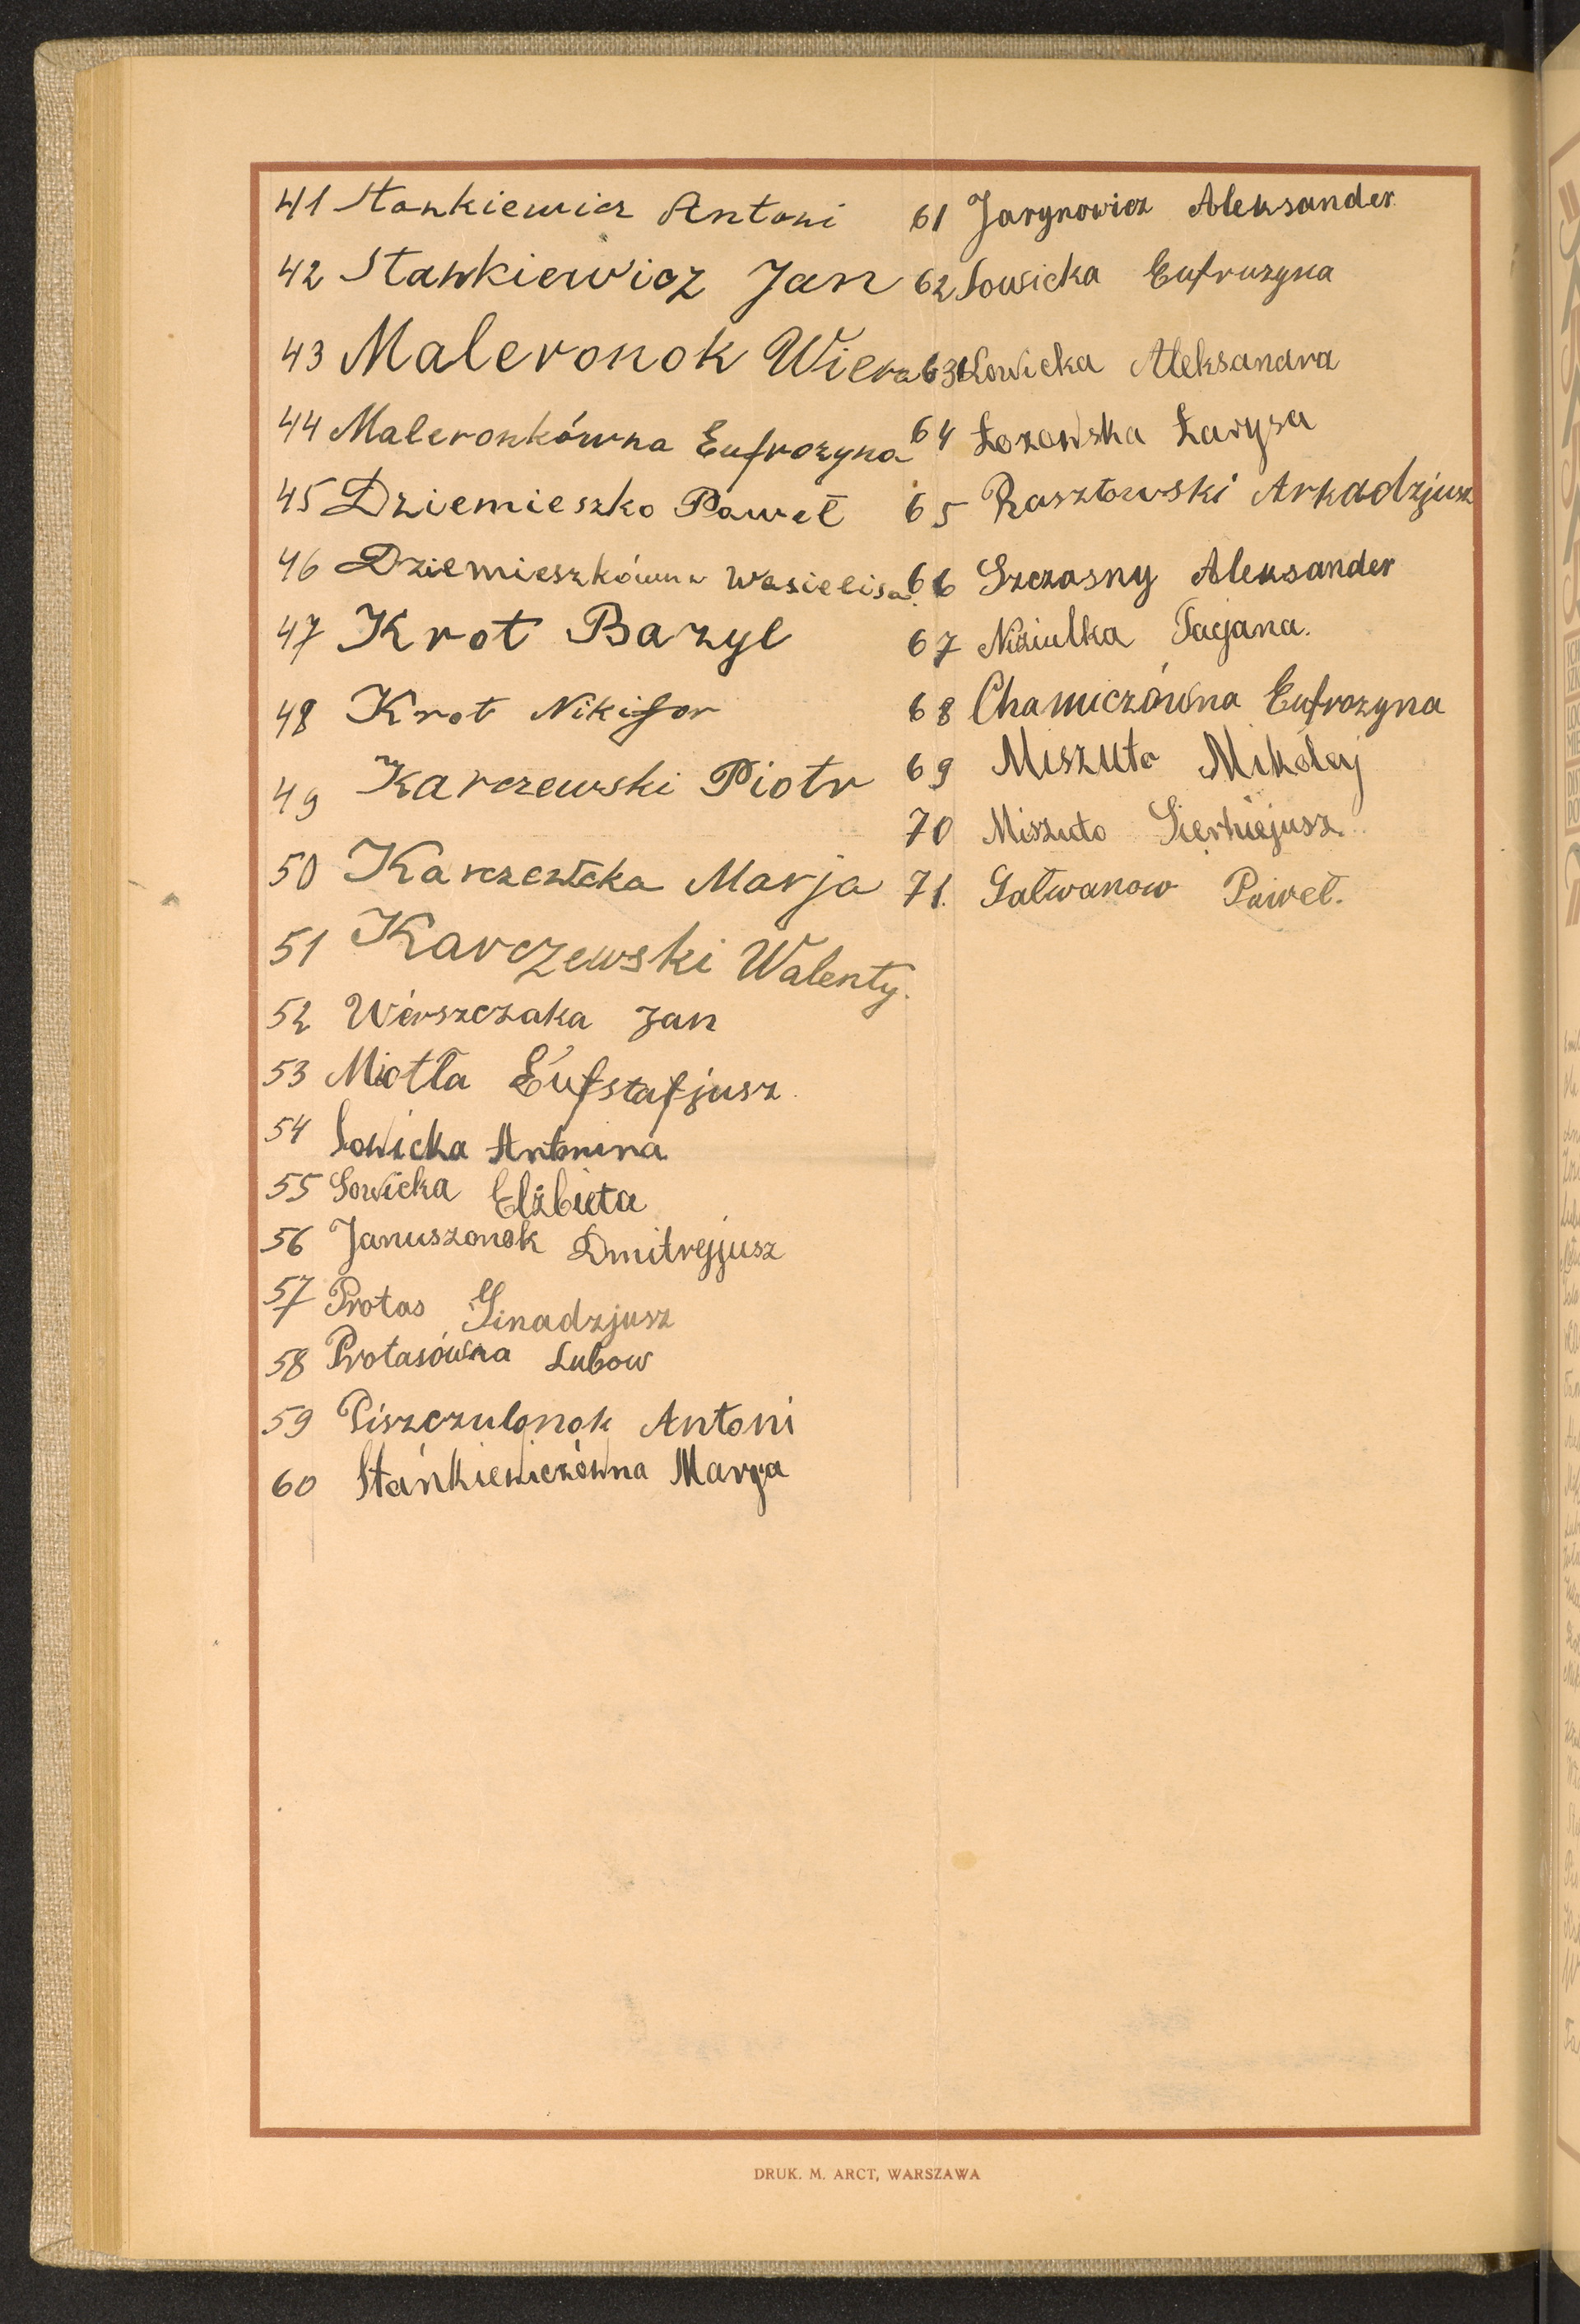 41 Stankiewicz Antoni
42 Stankiewicz Jan
43 Maleronok Wiera
44 Maleronkówna Eufrozyna
45 Dziemieszko Paweł
46 Dziemieszkówna Wasielisa.
47 Krot Bazyl
48 Krot Nikifor
49 Karczewski Piotr
50 Karczewska Marja
51 Karczewski Walenty.
52 Wierszczaka Jan
53 Miotła Eufstafjusz
54 Sowicka Antonina
55 Sowicka Elżbieta
56 Januszonok Dmitrejjusz
57 Protas Ginadzjusz
58 Protasówna Lubow
59 Piszczulonok Antoni
60 Stankiewiczówna Marja
61 Jarynowicz Aleksander
62 Sowicka Eufruzyna
63 Sowicka Aleksandra
64 Łozowska Łarysa
65 Rasztowski Arkadzjusz
66 Szczasny Aleksander
67 Niziulka Tacjana.
68 Chamiczówna Eufrozyna
69 Miszuto Mikołaj
70 Miszuto Sierhiejusz.
71. Sałwanow Paweł.
DRUK. M. ARCT, WARSZAWA